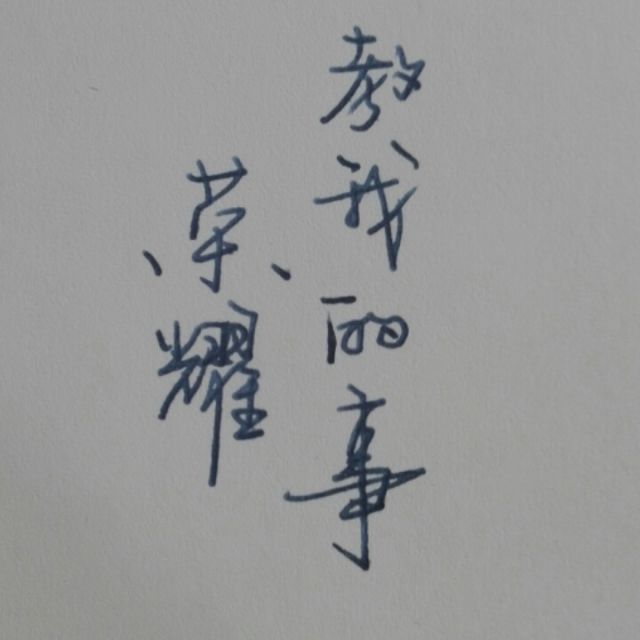 教我的事
荣耀